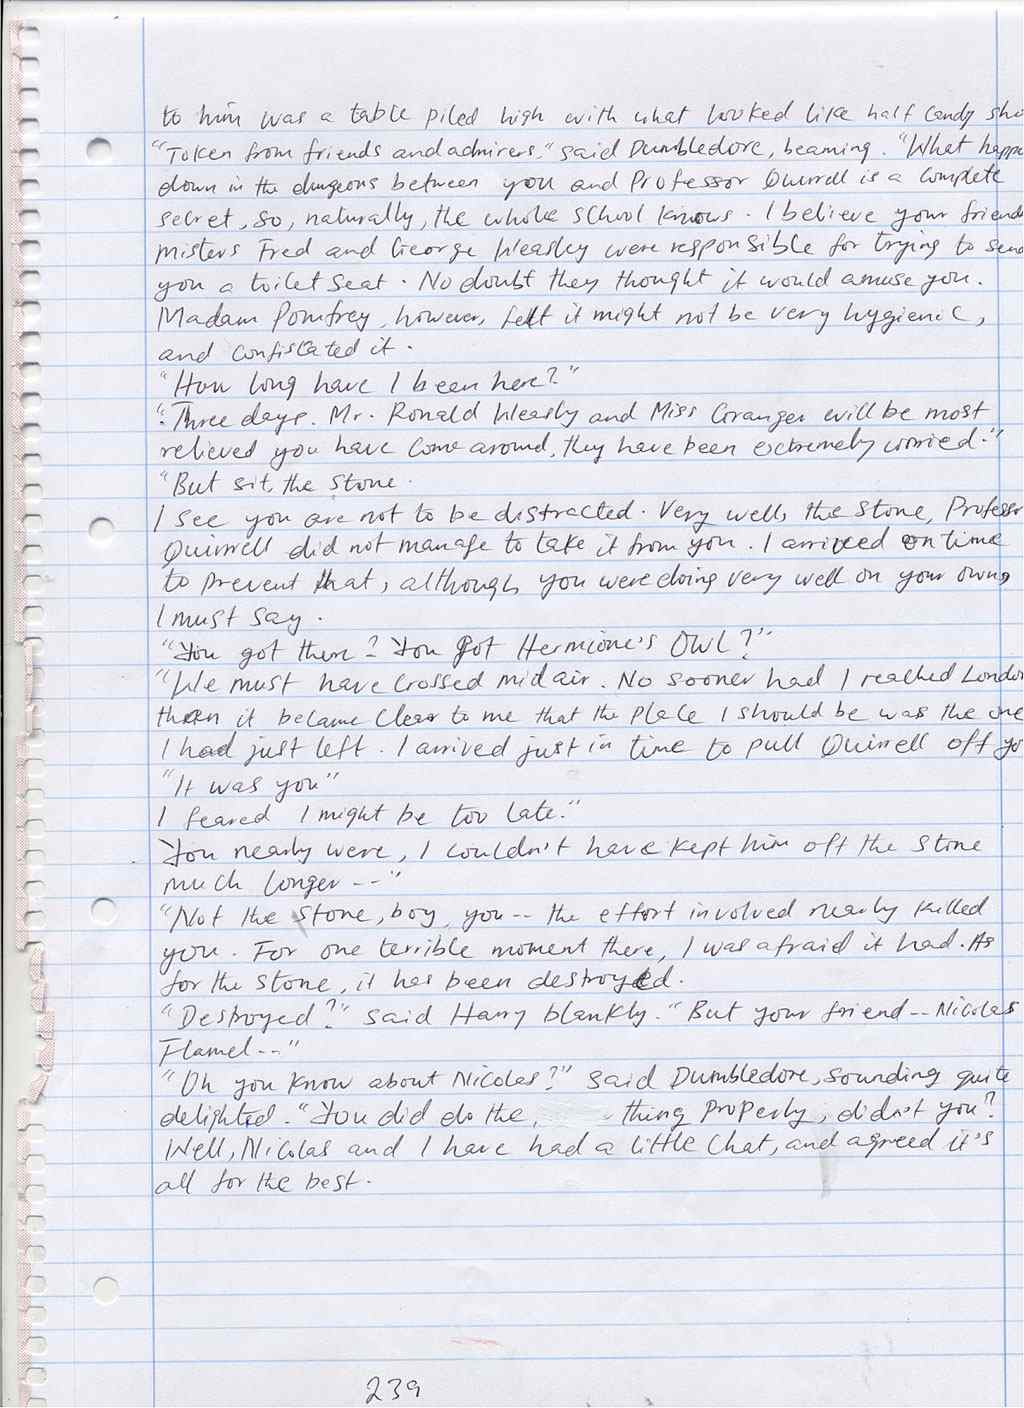 to him was a table piled high with what looked like half candy sho
"Token from friends and admirers," said Dumbledore, beaming. "What happe
down in the dungeons between you and Professor Quirrell is a complete
secret, so, naturally, the whole school knows. I believe your friends
misters Fred and George Weasley were responsible for trying to send
you a toilet seat. No doubt they thought it would amuse you.
Madam Pomfrey, however, felt it might not be very hygienic,
and confiscated it.
"How long have I been here?"
"Three days. Mr. Ronald Weasly and Miss Granger will be most
relieved you have come around, they have been extremely worried."
"But sit, the stone.
I see you are not to be distracted. Very well, the stone, Professr
Quirrell did not manage to take it from you. I arrived on time
to prevent that, although, you were doing very well on your own,
I must say.
"You got there? You got Hermione's OWL?"
"We must have crossed mid air. No sooner had I reached London
then it became clear to me that the place I should be was the one
I had just left. I arrived just in time to pull Quirrell off yo
"It was you"
I feared I might be too late."
You nearly were, I couldn't have kept him off the stone
much longer --"
"Not the stone, boy, you -- the effort involved nearly killed
you. For one terrible moment there, I was afraid it had. As
for the stone, it has been destroyed.
"Destroyed?" said Harry blankly. "But your friend -- Nicolas
Flamel --"
"Oh you know about Nicolas?" said Dumbledore, sounding quite
delighted. "You did do the, thing properly, didn't you?
Well, Nicolas and I have had a little chat, and agreed it's
all for the best.
239